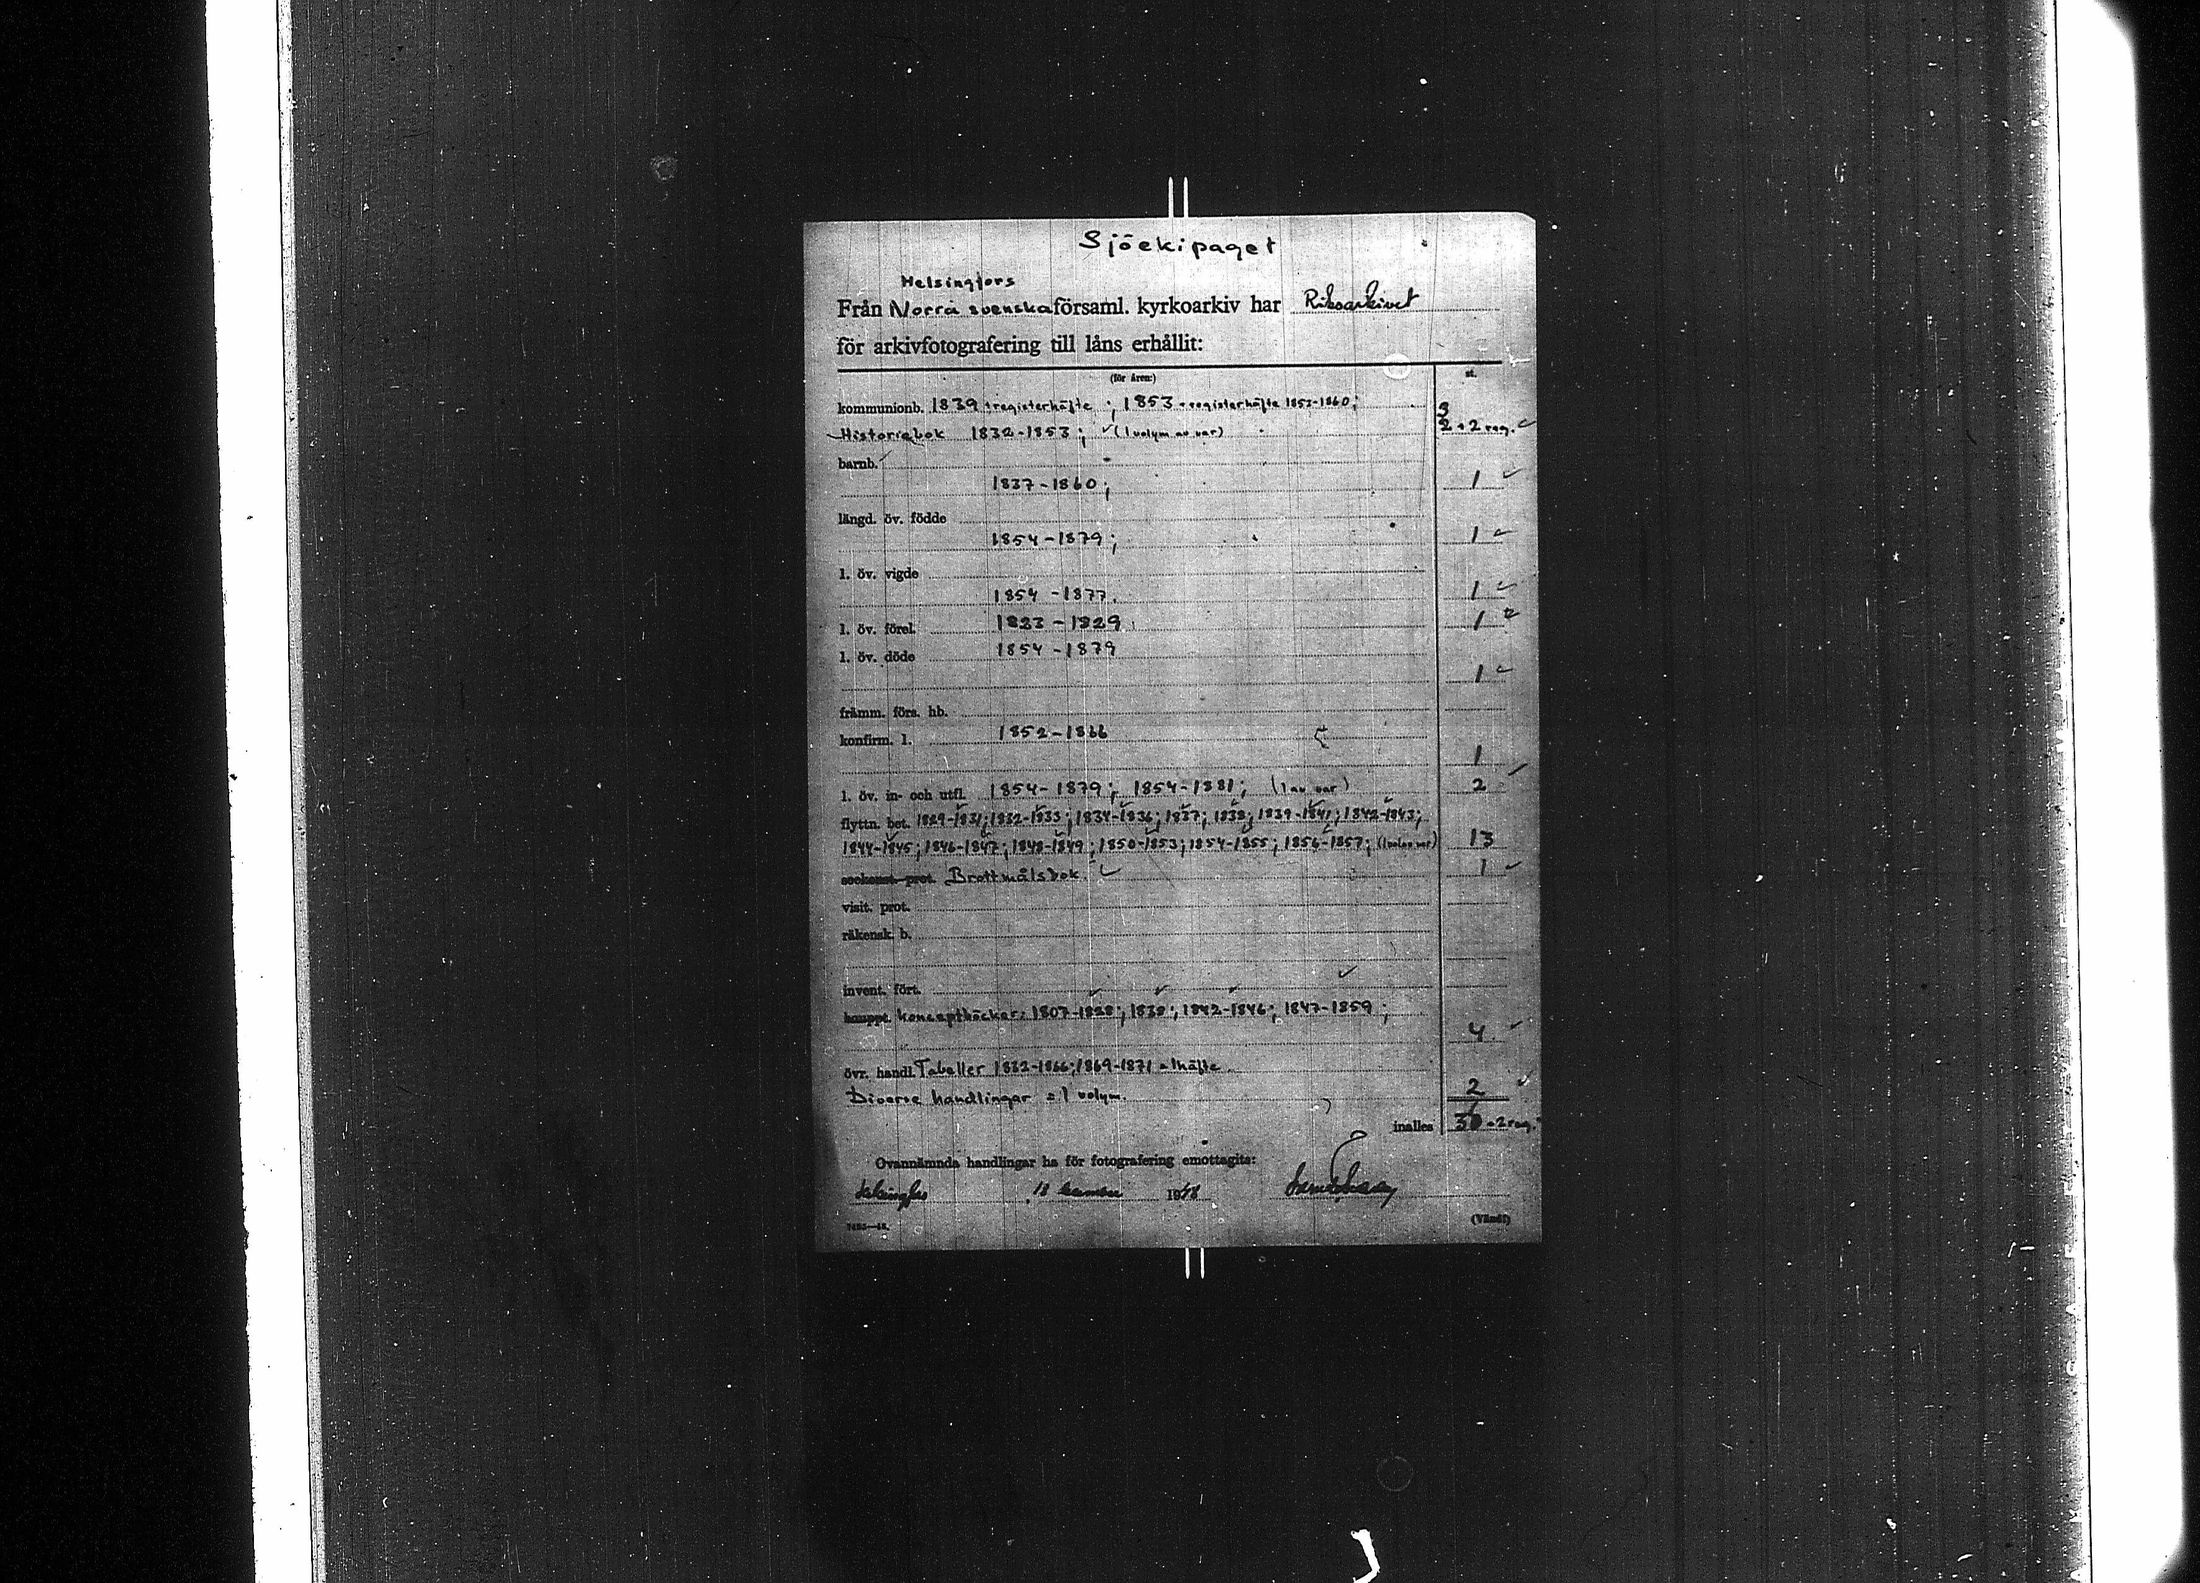 Sjöekipaget
Helsingfors
Från Norra svenska församl. kyrkoarkiv har Riksarkivet
för arkivfotografering till låns erhållit:
(för åren:) st.
kommunionb. 1839 + registerhäfte ; 1853 + registerhäfte 1853-1860; 3
Historiebok 1832-1853; (1 volym av var) 2 + 2 reg.
barnb.
1837-1860; 1
längd. öv. födde
1854-1879; 1
l. öv. vigde
1854-1877. 1
l. öv. förel. 1823-1829. 1
l. öv. döde 1854-1879
1
främm. förs. hb.
konfirm. l. 1852-1866
1
l. öv. in- och utfl. 1854-1879; 1854-1881; (1 av var) 2
flyttn. bet. 1829-1831; 1832-1833; 1834-1836; 1837; 1838; 1839-1841; 1842-1843;
1844-1845; 1846-1847; 1848-1849; 1850-1853; 1854-1855; 1856-1857; (1 vol av var) 13
sockenst. prot. Brottmålsbok. 1
visit. prot.
räkensk. b.
invent. fört.
konceptböcker: 1807-1828; 1838; 1842-1846; 1847-1859; 4
övr. handl. Tabeller 1832-1866; 1869-1871 = 1 häfte
Diverse handlingar = 1 volym. 2
inalles 30 + 2 reg.
Ovannämnda handlingar ha för fotografering emottagits:
Helsingfors 18 1948
(Vänd!)